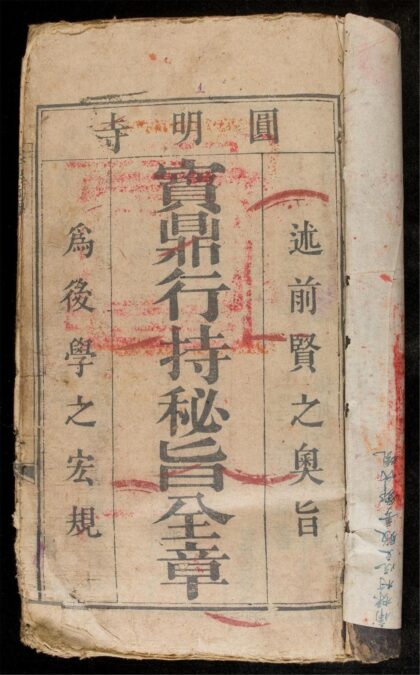 圓明寺
述前賢之奧旨
寳鼎行持秘旨全章
為後學之宏規